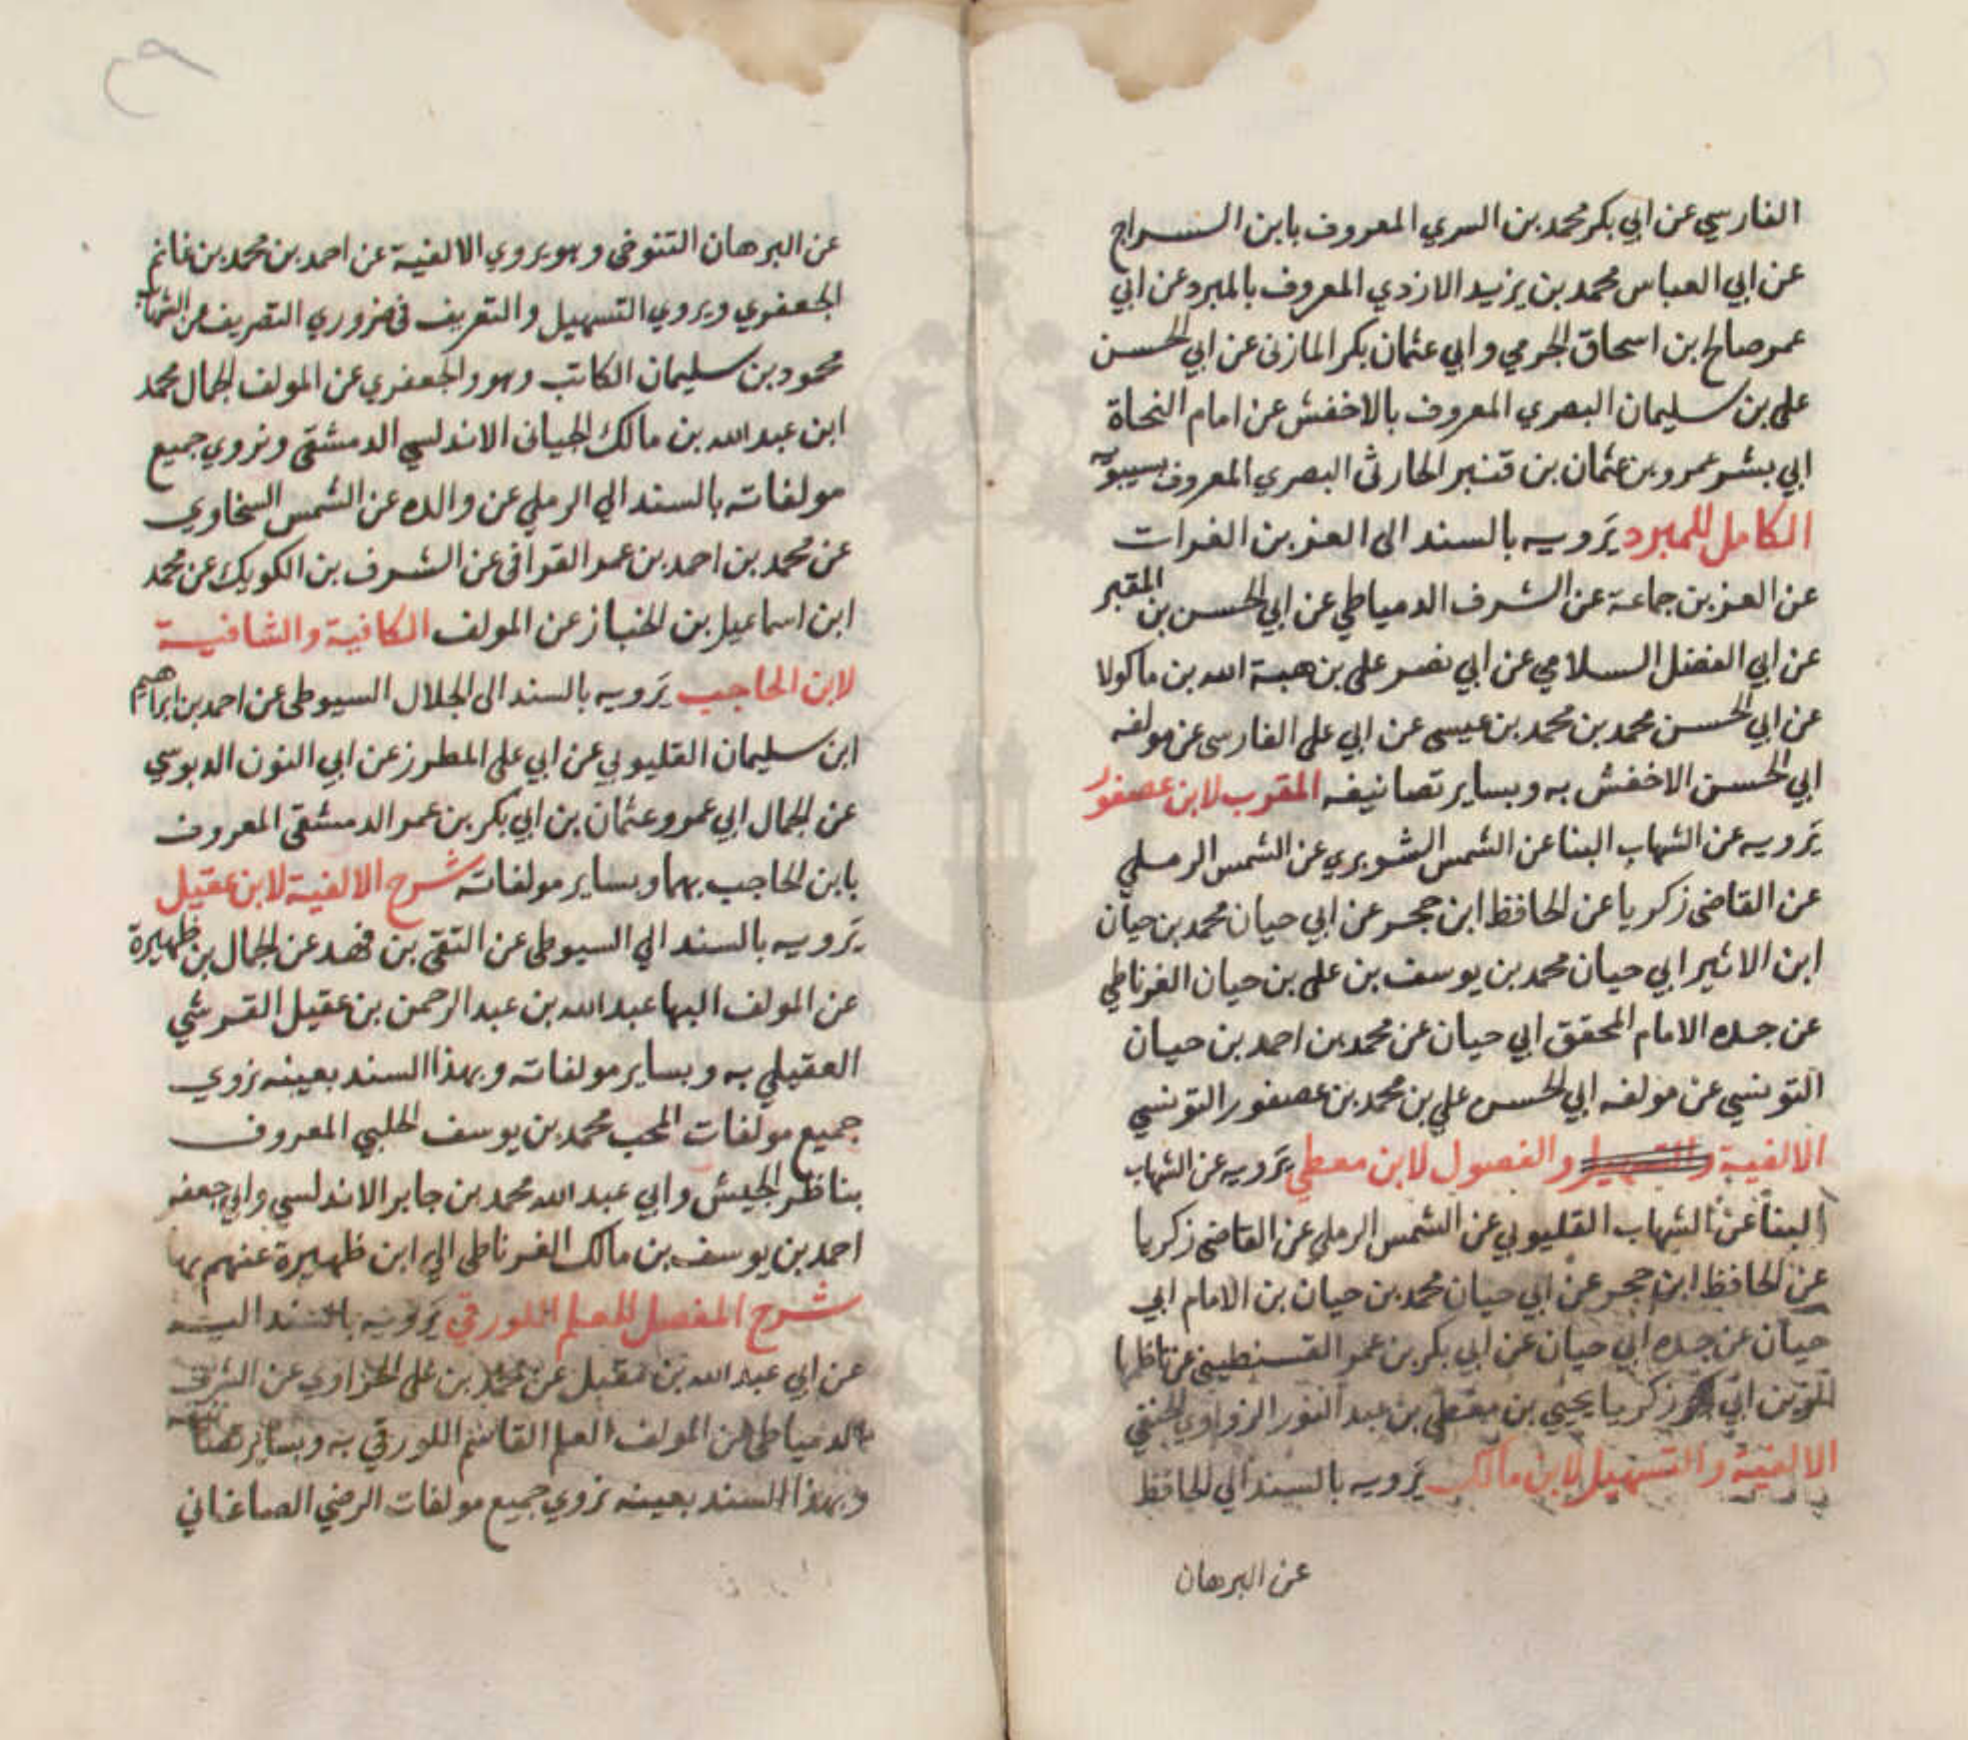 الفارسي عن ابي بكر محمد بن السري المعروف بابن السراج
عن ابي العباس محمد بن يزيد الازدي المعروف بالمبرد عن ابي
عمر صالح بن اسحاق الجرمي وابي عثمان بكر المازني عن ابي الحسن
علي بن سليمان البصري المعروف بالاخفش عن امام النحاة
ابي بشر عمرو بن عثمان بن قنبر الحارثي البصري المعروف بسيبويه
الكامل للمبرد يرويه بالسند الى العز بن الفرات
عن العز بن جماعة عن الشرف الدمياطي عن ابي الحسن بن المقير
عن ابي الفضل السلامي عن ابي نصر علي بن هبة الله بن ماكولا
عن ابي الحسن محمد بن محمد بن عيسى عن ابي علي الفارسي عن مولفه
ابي الحسن الاخفش به وبساير تصانيفه المقرب لابن عصفور
يرويه عن الشهاب البنا عن الشمس الشوبري عن الشمس الرملي
عن القاضي زكريا عن الحافظ ابن حجر عن ابي حيان محمد بن حيان
ابن الاثير ابي حيان محمد بن يوسف بن علي بن حيان الغرناطي
عن جده الامام المحقق ابي حيان عن محمد بن احمد بن حيان
التونسي عن مولفه ابي الحسن علي بن محمد بن عصفور التونسي
الالفية والفصول لابن معطي يرويه عن الشهاب
البنا عن الشهاب القليوبي عن الشمس الرملي عن القاضي زكريا
عن الحافظ ابن حجر عن ابي حيان محمد بن حيان بن الامام ابي
حيان عن جده ابي حيان عن ابي بكر بن عمر القسنطيني عن ناظمها
ابي زكريا يحيى بن معطي بن عبد النور الزواوي الحنفي
الالفية والتسهيل لابن مالك يرويه بالسند الي الحافظ
عن البرهان
عن البرهان التنوخي وهو يروي الالفية عن احمد بن محمد بن غانم
الجعفري ويروي التسهيل والتعريف في ضروري التصريف عن الشهاب
محمود بن سليمان الكاتب وهو والجعفري عن المولف الجمال محمد
ابن عبد الله بن مالك الجياني الاندلسي الدمشقي ونروي جميع
مولفاته بالسند الي الرملي عن والده عن الشمس السخاوي
عن محمد بن احمد بن عمر القرافي عن الشرف بن الكويك عن محمد
ابن اسماعيل بن الخباز عن المولف الكافية والشافية
لابن الحاجب يرويه بالسند الى الجلال السيوطي عن احمد بن ابراهيم
ابن سليمان القليوبي عن ابي علي المطرز عن ابي النون الدبوسي
عن الجمال ابي عمرو عثمان بن ابي بكر بن عمر الدمشقي المعروف
بابن الحاجب بهما وبساير مولفاته شرح الالفية لابن عقيل
يرويه بالسند الي السيوطي عن التقي بن فهد عن الجمال بن ظهيرة
عن المولف البها عبد الله بن عبد الرحمن بن عقيل القرشي
العقيلي به وبساير مولفاته وبهذا السند بعينه نروي
جميع مولفات المحب محمد بن يوسف الحلبي المعروف
بناظر الجيش وابي عبد الله محمد بن جابر الاندلسي وابي جعفر
احمد بن يوسف بن مالك الغرناطي الي ابن ظهيرة عنهم بها
شرح المفصل للعلم اللورقي يرويه بالسند اليه
عن ابي عبد الله بن مقبل عن محمد بن علي الحراوي عن الشرف
الدمياطي عن المولف العلم القاسم اللورقي به وبساير تصانيفه
وبهذا السند بعينه نروي جميع مولفات الرضي الصاغاني